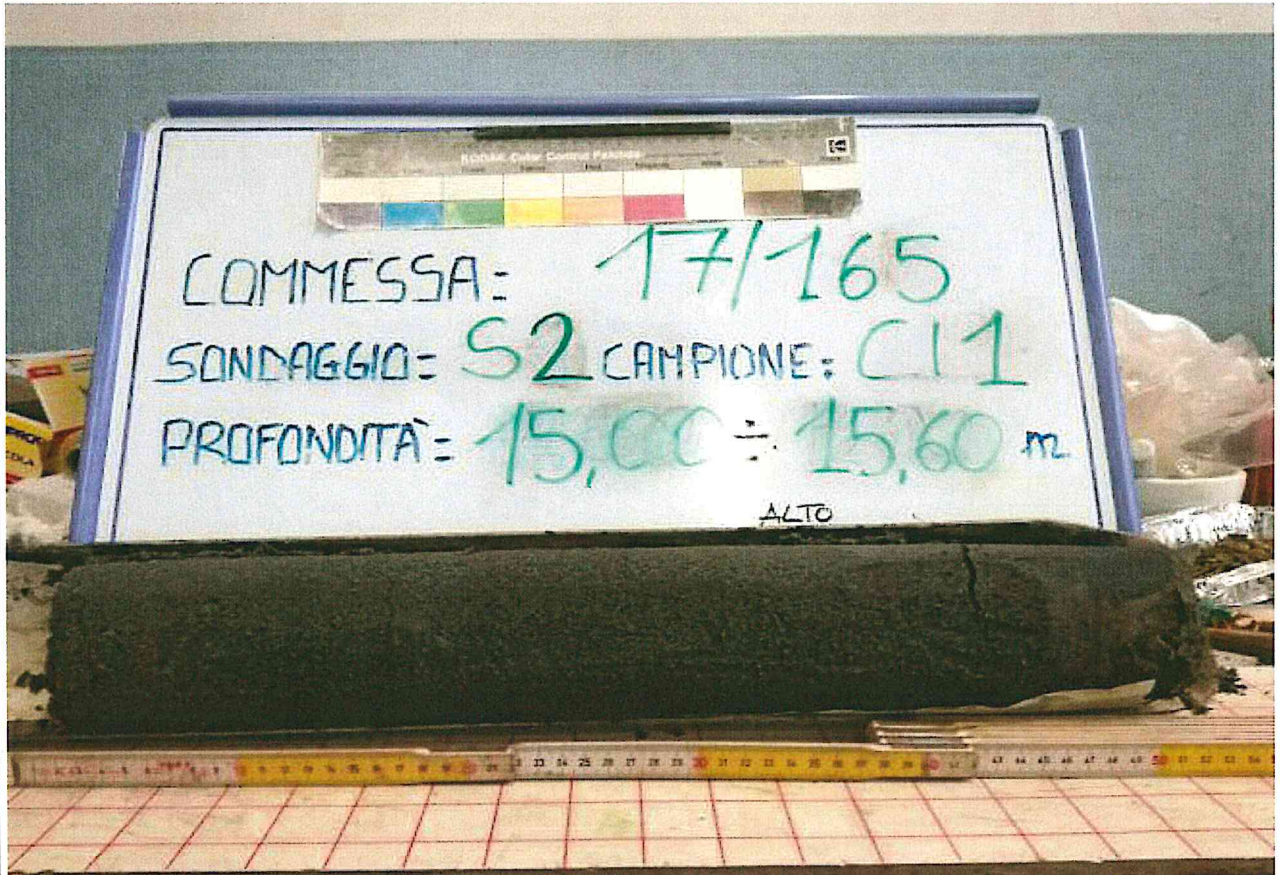 KODAK Color Control Patches
COMMESSA: 17/165
SONDAGGIO: S2 CAMPIONE: CI1
PROFONDITÀ: 15,00 ÷ 15,60 m
ALTO